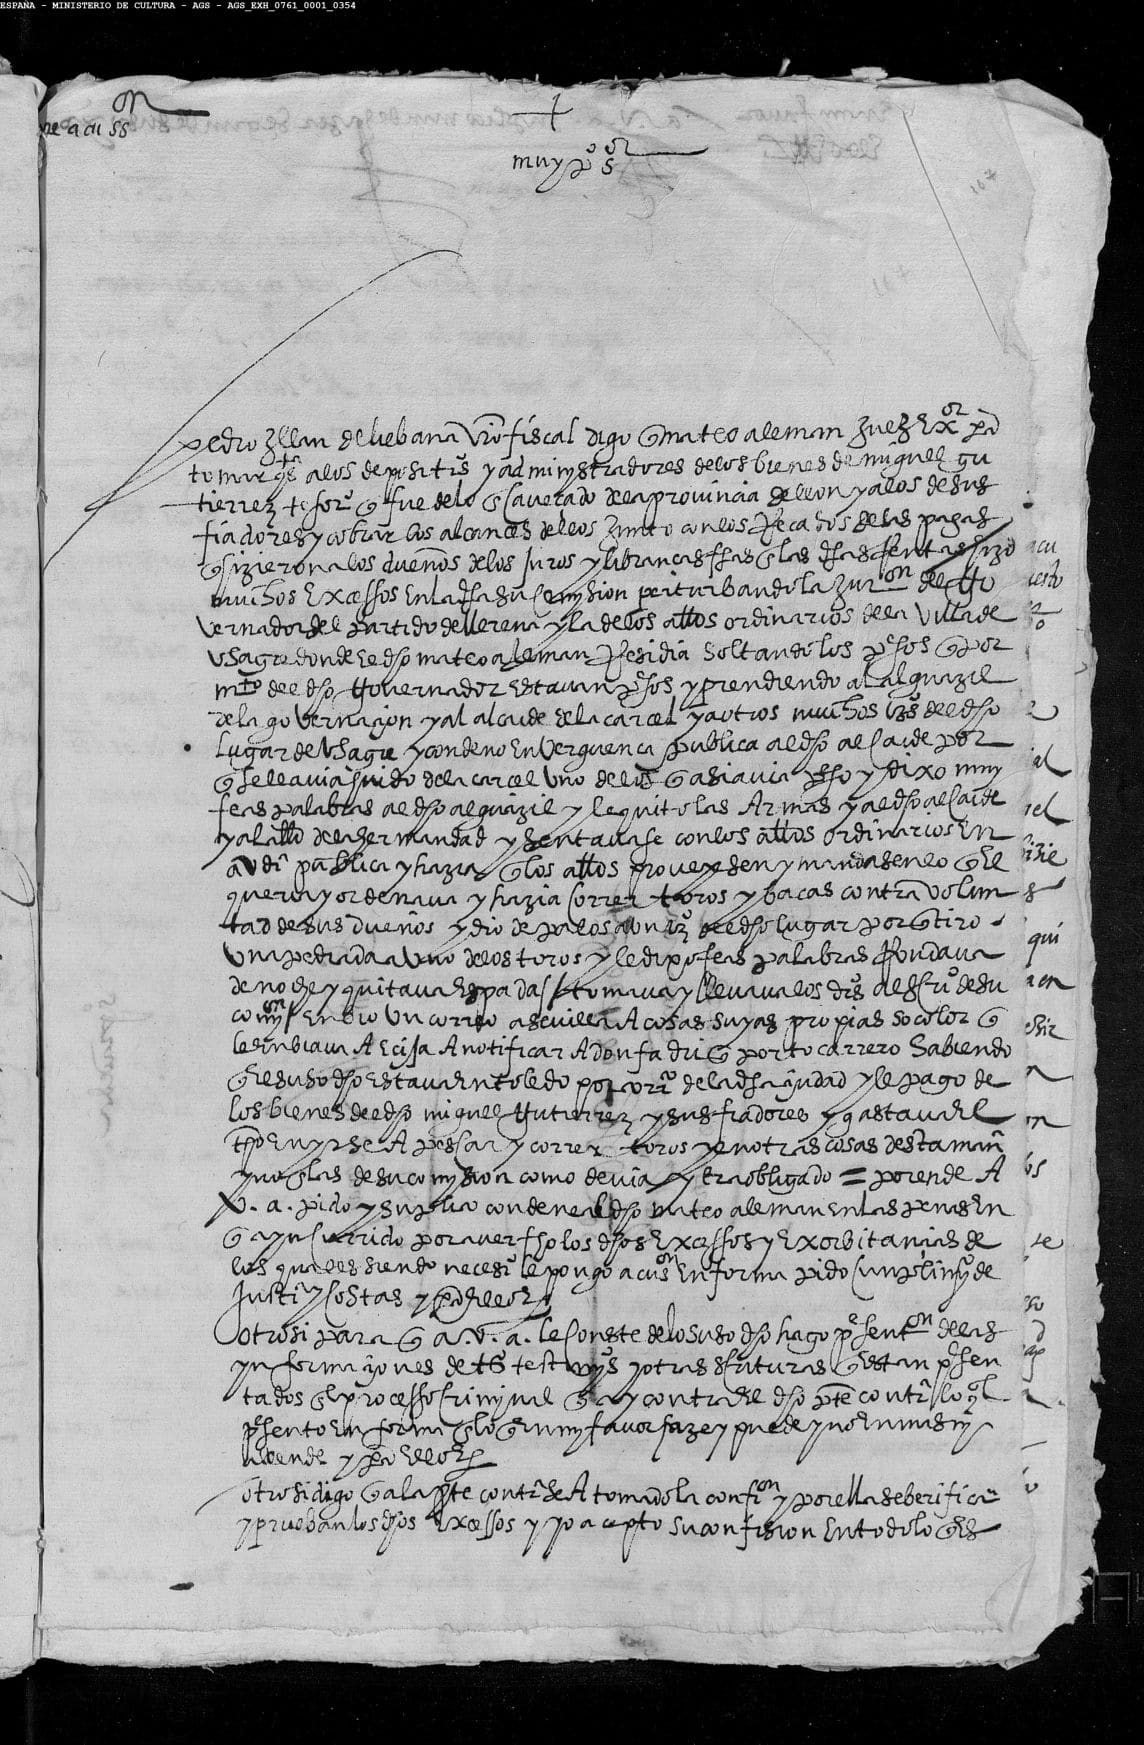 ESPAÑA - MINISTERIO DE CULTURA - AGS - AGS_EXH_0761_0001_0354
ne acuss on
+
muy p.o s.or
pedro yllan de liebana vro fiscal digo q mateo aleman Juez Ex.or pa
tomar qta a los depositos y administradores de los bienes de miguel gu
tierrez tesor.o q fue de lo encavezado de la provincia de leon y a los de sus
fiadores y cobrar los alcances dellos Junto con los Recados de las pagas
q hizieron a los dueños de los Juros y librancas en las dhas Rentas hizo
muchos Excessos En la dha su comysion perturbando la Jur.on del Go
vernador del partido de llerena y la de los alldes ordinarios de la villa de
vsagre donde el dho mateo aleman Residia soltando los p.sos q por
m.do del dho Governador Estavan p.sos y prendiendo al alguazil
de la governacion y al alcaide de la carcel y a otros muchos vzs del dho
lugar de vsagre y condeno En verguenca publica al dho alcaide por
q se le avia huido de la carcel uno de los q asi avia p.so y dixo muy
feas palabras al dho alguazil y le quito las Armas y al dho alcaide
y al allde de la hermandad y sentavase con los alldes ordinarios En
audi.a publica y hazia q los alldes proveyesen y mandasen lo q El
queria y ordenava y hazia correr toros y bacas contra volun
tad de sus dueños y dio de palos a un vz.o del dho lugar por q tiro
una pedrada a uno de los toros y le dixo feas palabras Rondava
de noche y quitava Espadas / tomava y llevava los drs al escriv.o de su
comy.on / Enbio un correo a sevilla A cosas suyas propias so color q
le Enbiava A Ecija A notificar A don fadriq portocarrero sabiendo
q El suso dho Estava En toledo por corr.or de la dha ciudad y le pago de
los bienes del dho miguel Gutierrez y sus fiadores y gastava El
tpo En yrse A pescar y correr toros y en otras cosas desta man.a
y no En las de su comysion como devia y Era obligado = por ende A
V. a. pido y sup.co condene al dho mateo aleman En las penas En
q a yncurrido por aver hecho los dhos Excessos y Exorbitancias de
los quales siendo neces.o le pongo acus.on En forma pido cumplim.to de
Justi.a y costas y para Ello &
otrosi para q a V. a. le conste de lo suso dho hago p.sent.on de las
ynformaciones de testimy.os y otras scrituras q Estan p.sen
tados En El processo criminal q ay contra El dho p.te contr.a lo ql
p.sento En forma En lo q En my favor faze y puede y no En mas ny
allende y para Ello &
otrosi digo q a la p.te contr.a se A tomado la conf.on y por ella se berifican
y prueban los dhos Excessos y yo acepto su confision En todo lo q Es